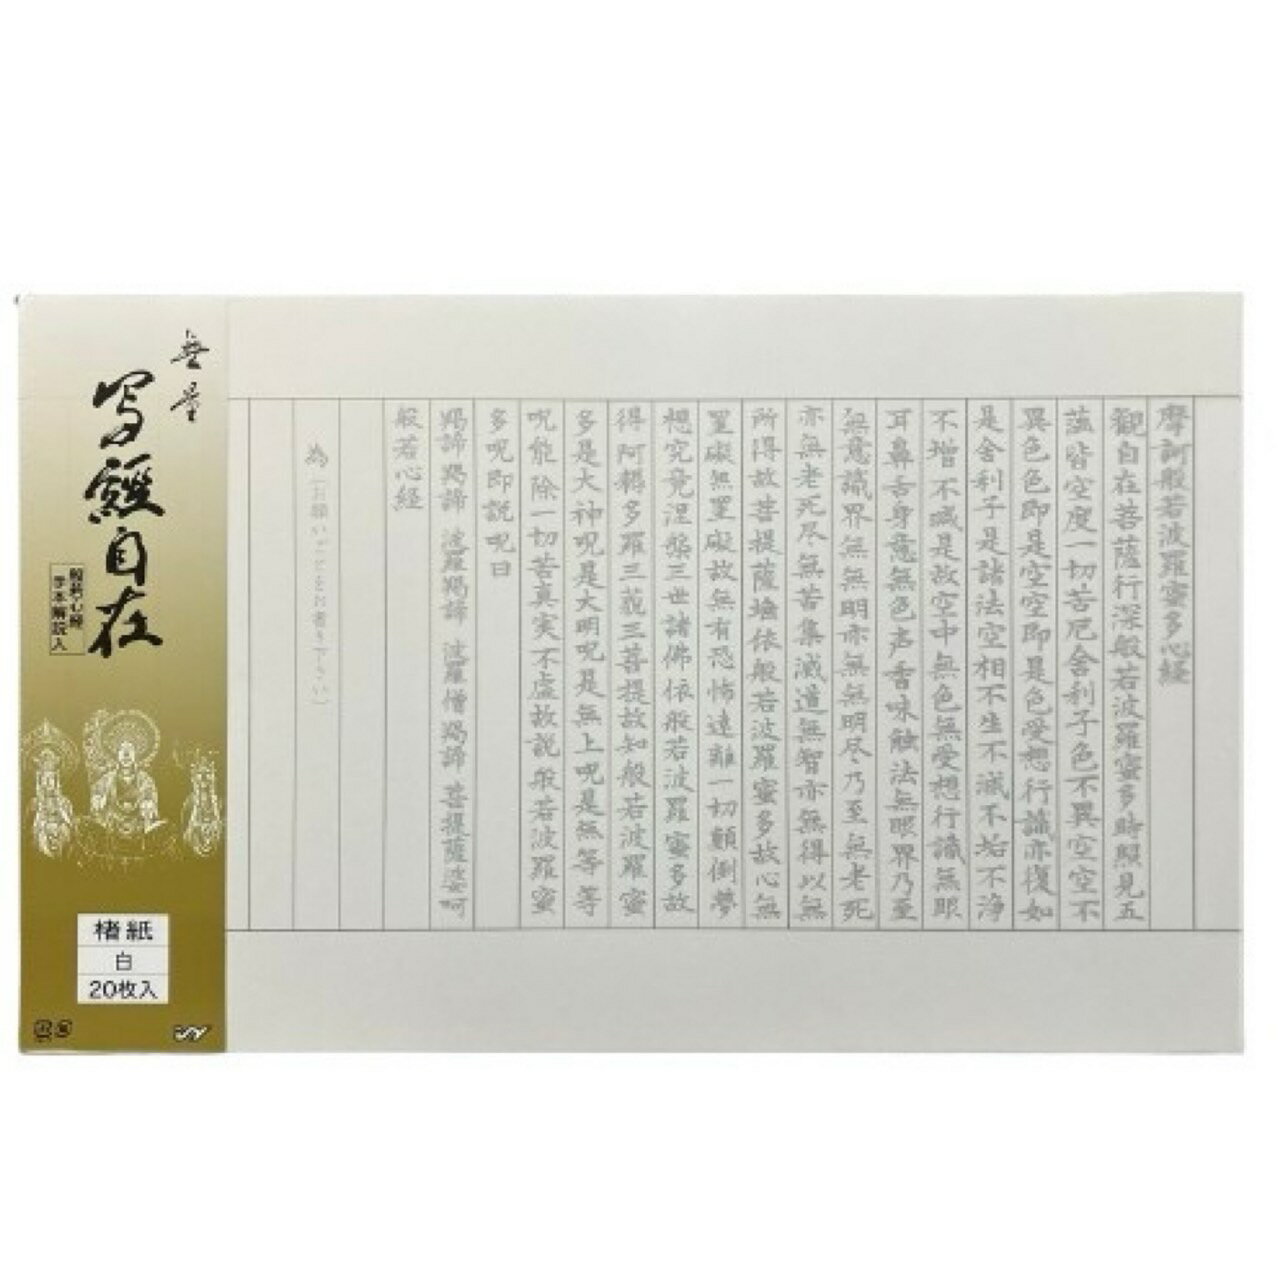 摩訶般若波羅蜜多心経
観自在菩薩行深般若波羅蜜多時照見五
蘊皆空度一切苦厄舎利子色不異空空不
異色色即是空空即是色受想行識亦復如
是舎利子是諸法空相不生不滅不垢不浄
不増不減是故空中無色無受想行識無眼
耳鼻舌身意無色声香味触法無眼界乃至
無意識界無無明亦無無明尽乃至無老死
亦無老死尽無苦集滅道無智亦無得以無
所得故菩提薩埵依般若波羅蜜多故心無
罣礙無罣礙故無有恐怖遠離一切顛倒夢
想究竟涅槃三世諸佛依般若波羅蜜多故
得阿耨多羅三藐三菩提故知般若波羅蜜
多是大神呪是大明呪是無上呪是無等等
呪能除一切苦真実不虚故説般若波羅蜜
多呪即説呪曰
羯諦 羯諦 波羅羯諦 波羅僧羯諦 菩提薩婆呵
般若心経
為(お願いごとをお書き下さい)
無量
写經自在
般若心経
手本解説入
楮紙
白
20枚入